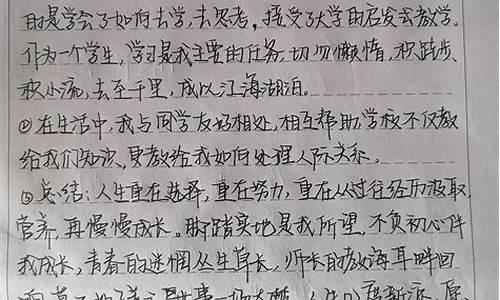 的是学会了如何去学,去思考,接受了大学的启发式教学。
作为一个学生,学习是我主要的任务,切勿懒惰,积跬步、
积小流,去至千里,成以江海湖泊。
②在生活中,我与同学友好相处,相互帮助,学校不仅教
给我们知识、更教给我如何处理人际关系。
③总结:人生重在选择,重在努力,重在从过往经历汲取
营养,再慢慢成长。脚踏实地是我所望,不负初心伴
我成长,青春的迷惘丛生草长,师长的教诲耳畔回